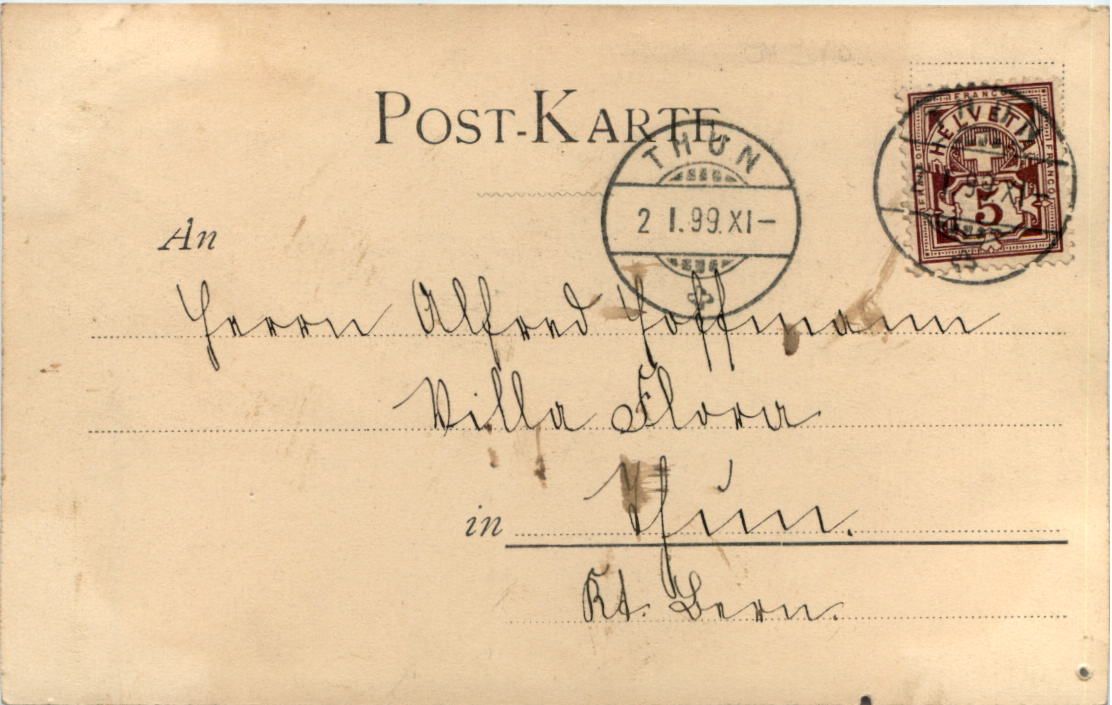 POST-KARTE
FRANCO
HELVETIA
FRANCO
FRANCO
5
THUN
2 I.99.XI-
An
Herrn Alfred Hoffmann
Villa Flora
in Thun.
Kt. Bern.